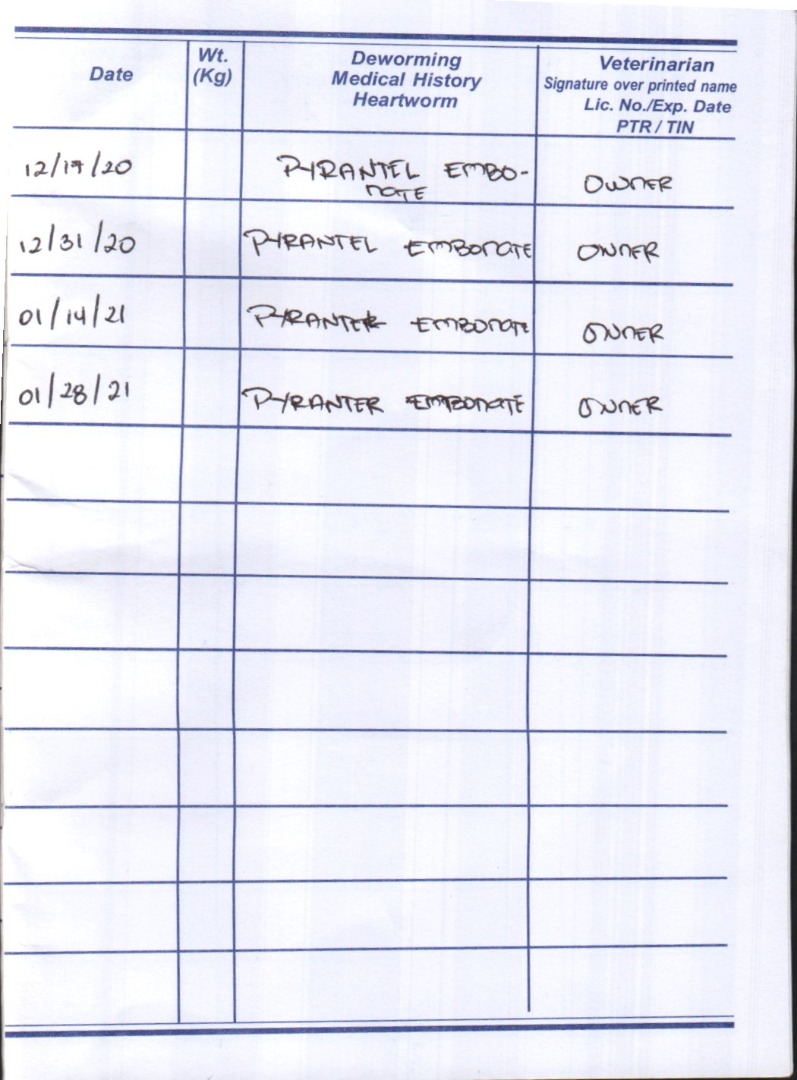 Date Wt. (Kg) Deworming Medical History Heartworm Veterinarian Signature over printed name Lic. No./Exp. Date PTR / TIN
12/17/20 PYRANTEL EMBO-
NOTE OWNER
12/31/20 PYRANTEL EMBONATE OWNER
01/14/21 PYRANTER EMBONATE OWNER
01/28/21 PYRANTER EMBONATE OWNER